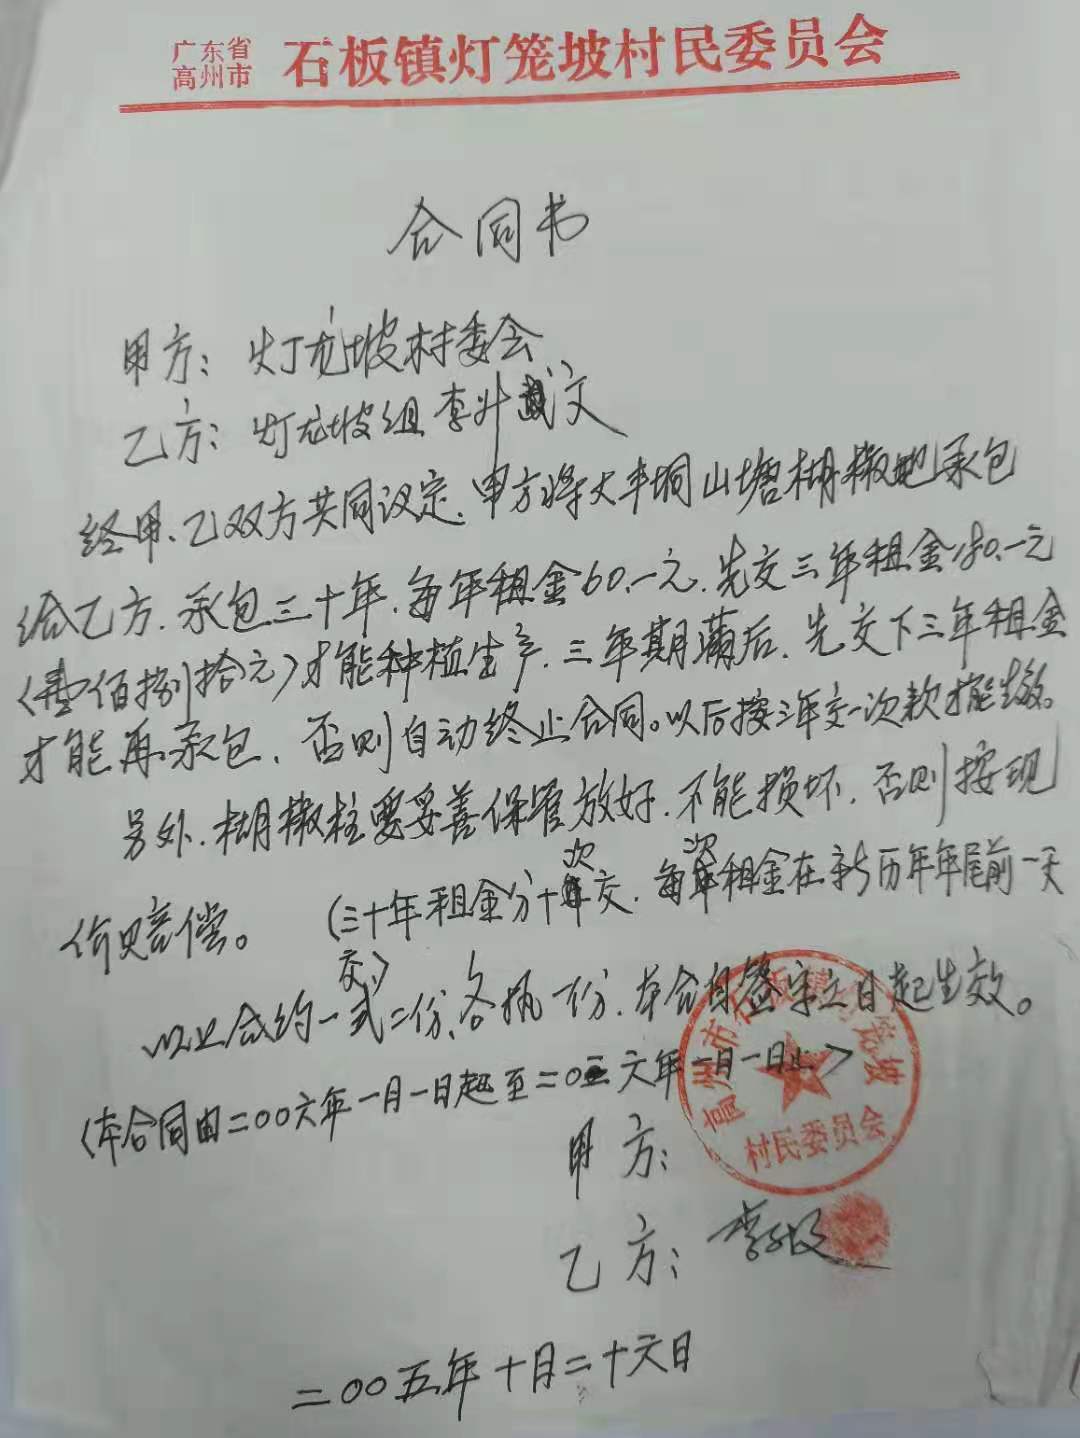 广东省
高州市
石板镇灯笼坡村民委员会
合同书
甲方：灯龙坡村委会
乙方：灯龙坡组李文
经甲、乙双方共同议定，甲方将大丰垌山塘胡椒地承包
给乙方，承包三十年，每年租金60.一元，先交三年租金180.一元
（壹佰捌拾元）才能种植生产，三年期满后，先交下三年租金
才能再承包，否则自动终止合同。以后按三年交一次款才能生效。
另外，胡椒柱要妥善保管放好，不能损坏，否则按现
价赔偿。（三十年租金分十次交，每次租金在新历年年尾前一天
交）
以上合约一式二份，各执一份，本合同签字之日起生效。
（本合同由二00六年一月一日起至二0三六年一月一日止）
高州市石板镇灯笼坡
村民委员会
甲方：
乙方：李
二00五年十月二十六日